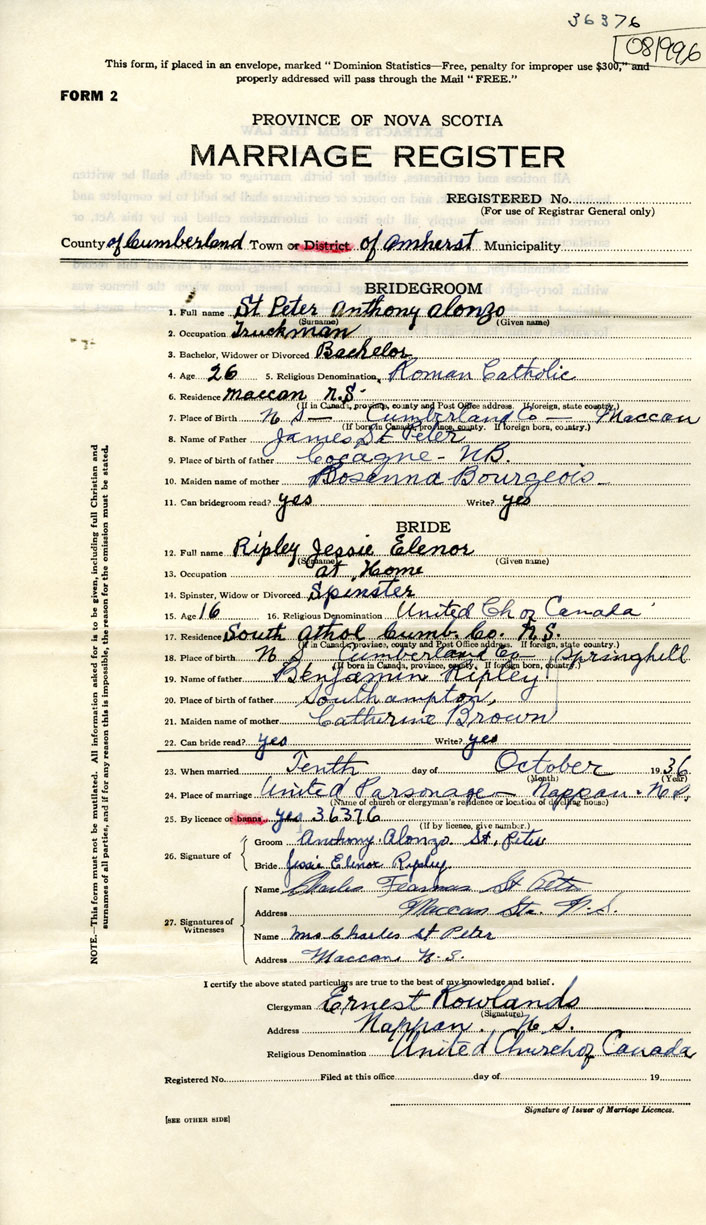 36376
081996
This form, if placed in an envelope, marked "Dominion Statistics—Free, penalty for improper use $300," and
properly addressed will pass through the Mail "FREE."
FORM 2
PROVINCE OF NOVA SCOTIA
MARRIAGE REGISTER
REGISTERED No.
(For use of Registrar General only)
County of Cumberland Town or District of Amherst Municipality
BRIDEGROOM
1. Full name St Peter Anthony Alonzo
(Surname) (Given name)
2. Occupation Truckman
3. Bachelor, Widower or Divorced Bachelor
4. Age 26 5. Religious Denomination Roman Catholic
6. Residence Maccan N.S.
(If in Canada, province, county and Post Office address. If foreign, state country.)
7. Place of Birth N S — Cumberland Co — Maccan
(If born in Canada, province, county. If foreign born, country.)
8. Name of Father James St Peter
9. Place of birth of father Cocagne - NB.
10. Maiden name of mother Rosanna Bourgeois
11. Can bridegroom read? yes Write? yes
BRIDE
12. Full name Ripley Jessie Elenor
(Surname) (Given name)
13. Occupation at Home
14. Spinster, Widow or Divorced Spinster
15. Age 16 16. Religious Denomination United Ch of Canada
17. Residence South Athol Cumb. Co. N.S.
(If in Canada, province, county and Post Office address. If foreign, state country.)
18. Place of birth N S Cumberland Co — Springhill
(If born in Canada, province, county. If foreign born, country.)
19. Name of father Benjamin Ripley
20. Place of birth of father Southampton,
21. Maiden name of mother Catherine Brown
22. Can bride read? yes Write? yes
23. When married Tenth day of October 1936
(Month) (Year)
24. Place of marriage United Parsonage — Nappan. N.S.
(Name of church or clergyman's residence or location of dwelling house)
25. By licence or banns yes 36376
(If by licence, give number.)
26. Signature of
Groom Anthony Alonzo St, Peter
Bride Jessie Elenor Ripley
27. Signatures of Witnesses
Name Charles St Peter
Address Maccan Sta. N.S.
Name Mrs Charles St Peter
Address Maccan N.S.
I certify the above stated particulars are true to the best of my knowledge and belief.
Clergyman Ernest Rowlands
(Signature)
Address Nappan. N S.
Religious Denomination United Church of Canada
Registered No. Filed at this office day of 19
Signature of Issuer of Marriage Licences.
[SEE OTHER SIDE]
NOTE.—This form must not be mutilated. All information asked for is to be given, including full Christian and
surnames of all parties, and if for any reason this is impossible, the reason for the omission must be stated.